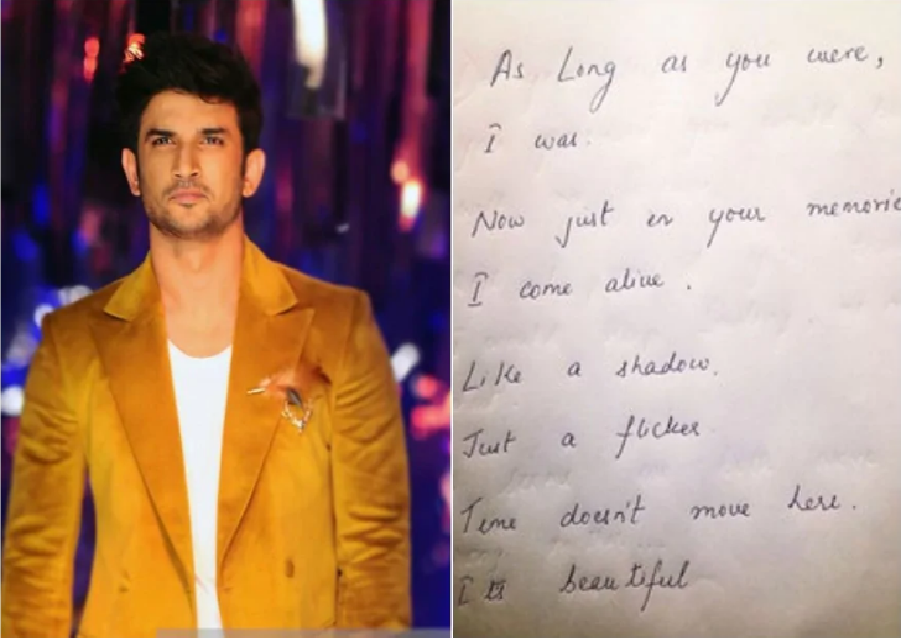 As Long as you were,
I was.
Now just in your memorie
I come alive.
Like a shadow.
Just a flicker
Time doesn't move here.
It's beautiful